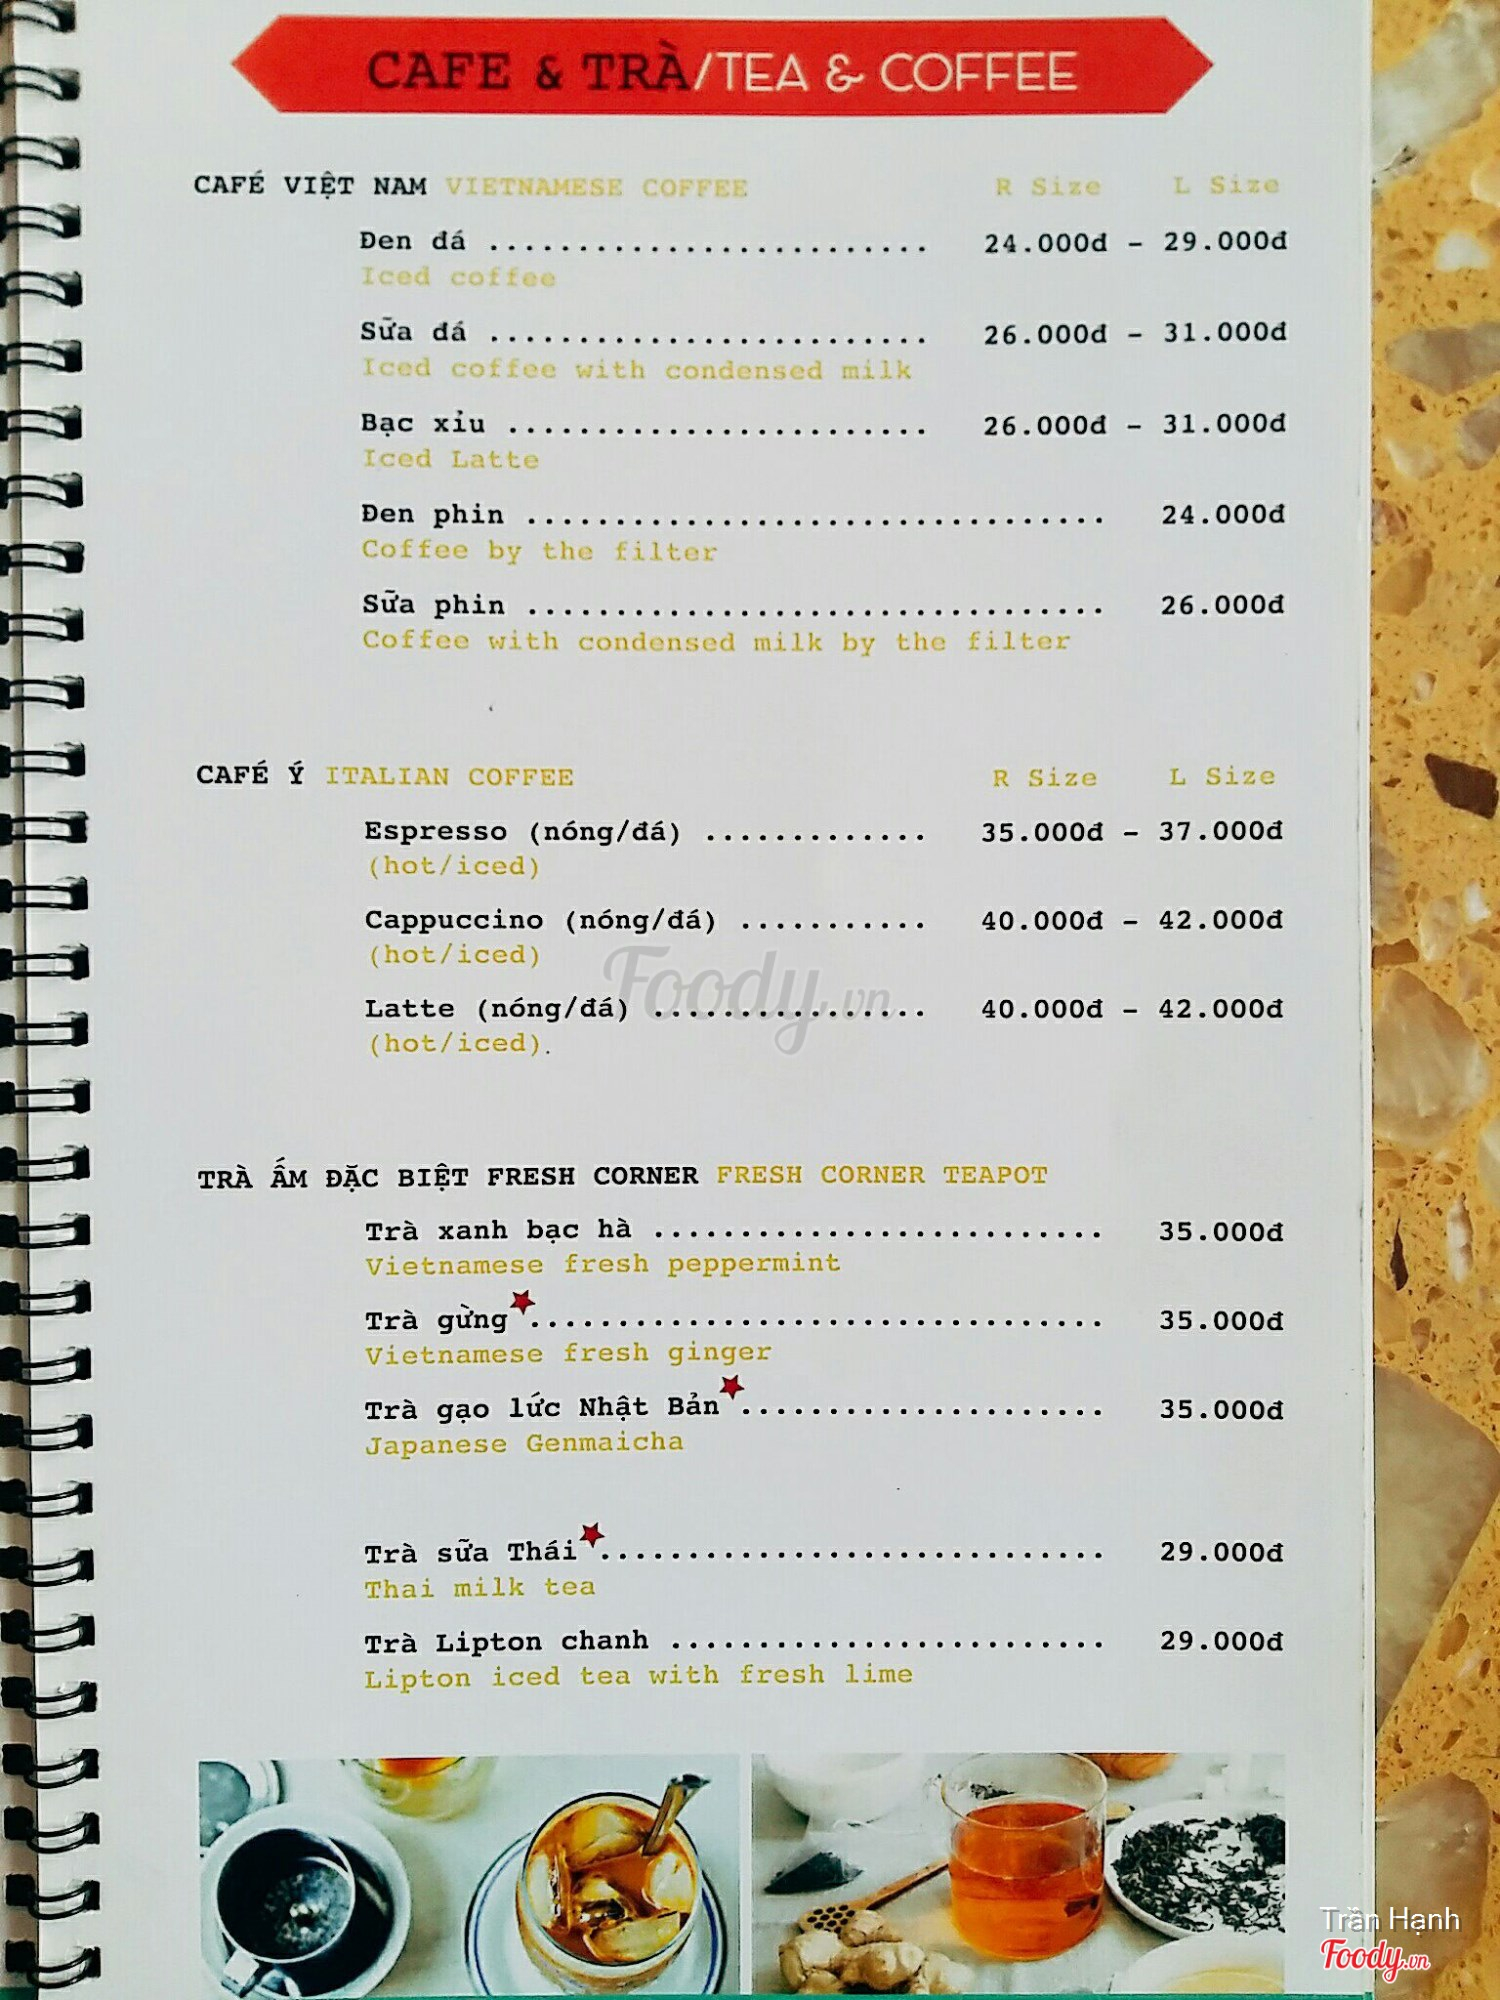 CAFE & TRÀ/TEA & COFFEE
CAFÉ VIỆT NAM VIETNAMESE COFFEE R Size L Size
Đen đá .......................... 24.000đ - 29.000đ
Iced coffee
Sữa đá .......................... 26.000đ - 31.000đ
Iced coffee with condensed milk
Bạc xỉu ........................ 26.000đ - 31.000đ
Iced Latte
Đen phin ................................. 24.000đ
Coffee by the filter
Sữa phin ................................. 26.000đ
Coffee with condensed milk by the filter
CAFÉ Ý ITALIAN COFFEE R Size L Size
Espresso (nóng/đá) ............. 35.000đ - 37.000đ
(hot/iced)
Cappuccino (nóng/đá) ........... 40.000đ - 42.000đ
(hot/iced)
Latte (nóng/đá) ................ 40.000đ - 42.000đ
(hot/iced).
Foody.vn
TRÀ ẤM ĐẶC BIỆT FRESH CORNER FRESH CORNER TEAPOT
Trà xanh bạc hà .......................... 35.000đ
Vietnamese fresh peppermint
Trà gừng ................................. 35.000đ
Vietnamese fresh ginger
Trà gạo lức Nhật Bản ..................... 35.000đ
Japanese Genmaicha
Trà sữa Thái ............................. 29.000đ
Thai milk tea
Trà Lipton chanh ......................... 29.000đ
Lipton iced tea with fresh lime
Trần Hạnh
Foody.vn